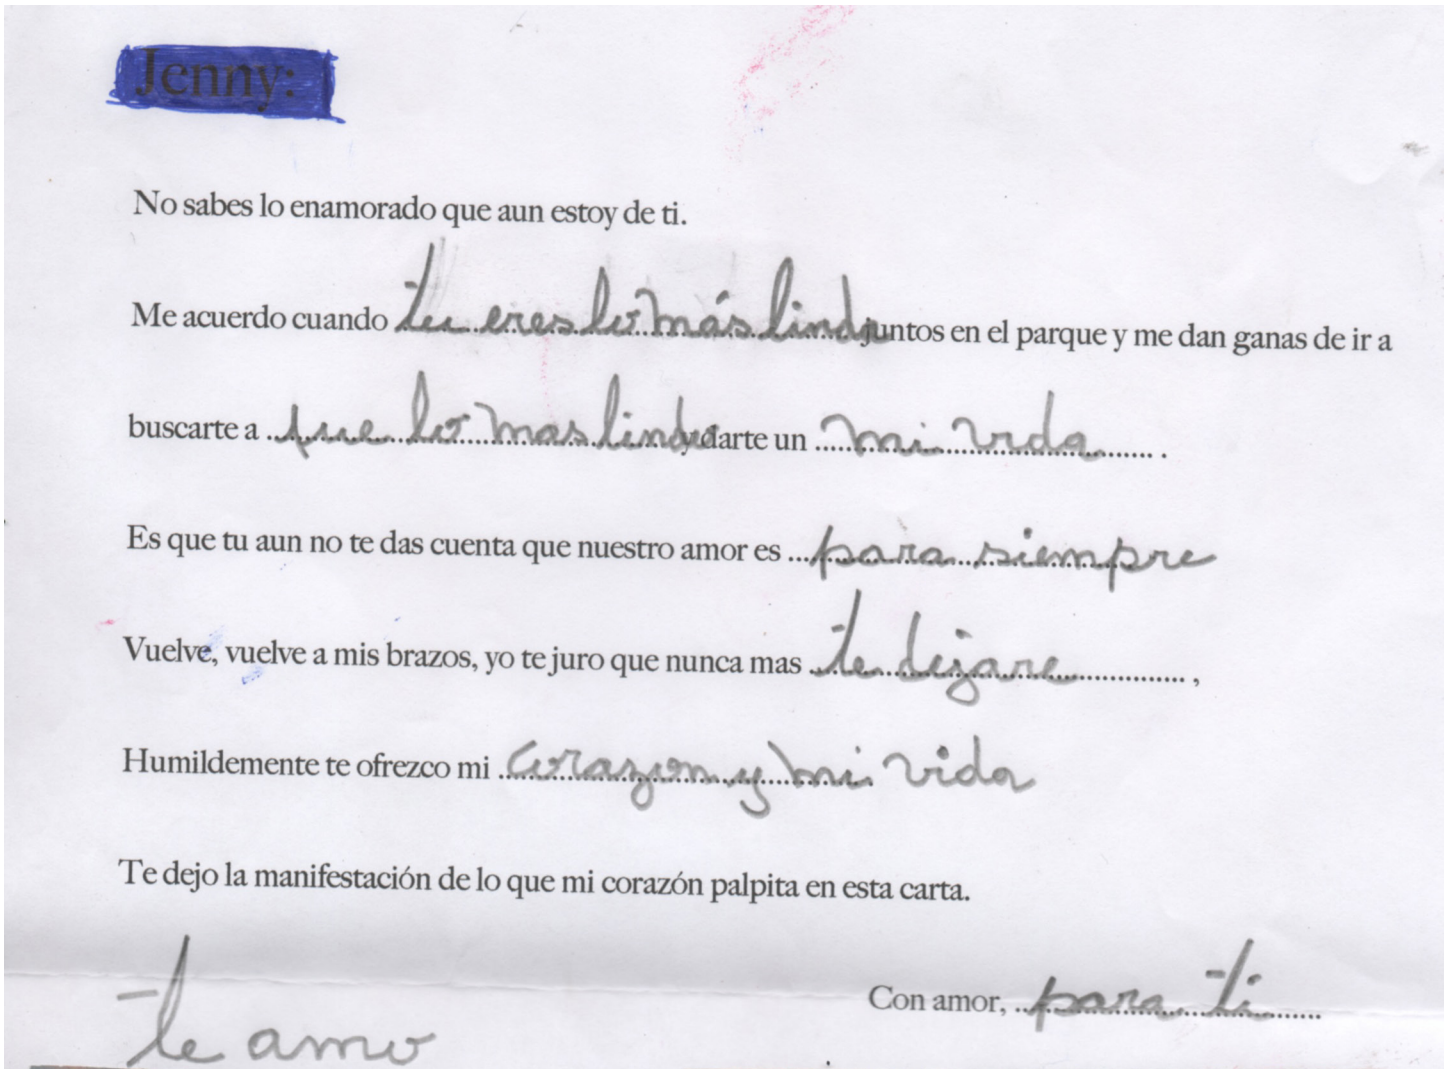 Jenny:
No sabes lo enamorado que aun estoy de ti.
Me acuerdo cuando tu eres lo más lindo juntos en el parque y me dan ganas de ir a
buscarte a que lo mas lindo y darte un mi vida .
Es que tu aun no te das cuenta que nuestro amor es para siempre
Vuelve, vuelve a mis brazos, yo te juro que nunca mas te dejare ,
Humildemente te ofrezco mi corazon y mi vida
Te dejo la manifestación de lo que mi corazón palpita en esta carta.
Con amor, para ti
te amo